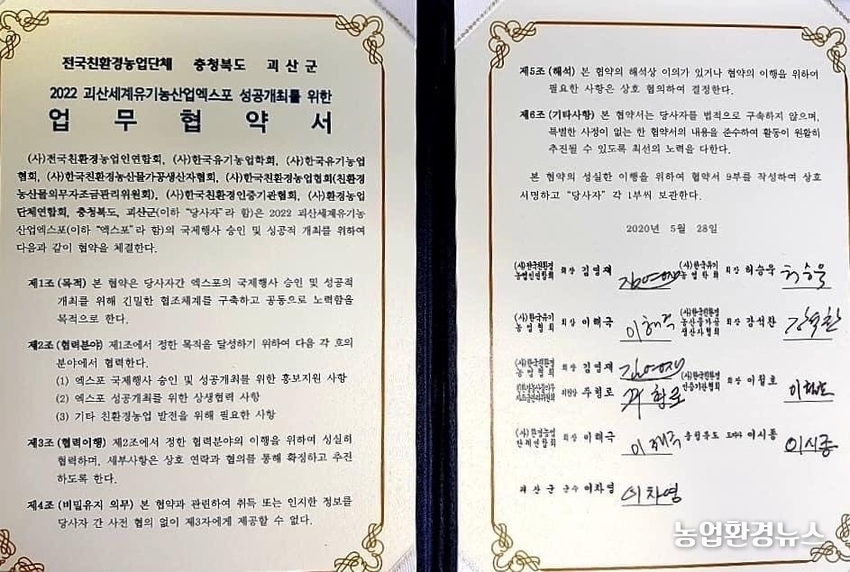 전국친환경농업단체 충청북도 괴산군
2022 괴산세계유기농산업엑스포 성공개최를 위한
업무협약서
(사)전국친환경농업인연합회, (사)한국유기농업학회, (사)한국유기농업
협회, (사)한국친환경농산물가공생산자협회, (사)한국친환경농업협회(친환경
농산물의무자조금관리위원회), (사)한국친환경인증기관협회, (사)환경농업
단체연합회, 충청북도, 괴산군(이하 "당사자"라 함)은 2022 괴산세계유기농
산업엑스포(이하 "엑스포"라 함)의 국제행사 승인 및 성공적 개최를 위하여
다음과 같이 협약을 체결한다.
제1조 (목적) 본 협약은 당사자간 엑스포의 국제행사 승인 및 성공적
개최를 위해 긴밀한 협조체계를 구축하고 공동으로 노력함을
목적으로 한다.
제2조 (협력분야) 제1조에서 정한 목적을 달성하기 위하여 다음 각 호의
분야에서 협력한다.
(1) 엑스포 국제행사 승인 및 성공개최를 위한 홍보지원 사항
(2) 엑스포 성공개최를 위한 상생협력 사항
(3) 기타 친환경농업 발전을 위해 필요한 사항
제3조 (협력이행) 제2조에서 정한 협력분야의 이행을 위하여 성실히
협력하며, 세부사항은 상호 연락과 협의를 통해 확정하고 추진
하도록 한다.
제4조 (비밀유지 의무) 본 협약과 관련하여 취득 또는 인지한 정보를
당사자 간 사전 협의 없이 제3자에게 제공할 수 없다.
제5조 (해석) 본 협약의 해석상 이의가 있거나 협약의 이행을 위하여
필요한 사항은 상호 협의하여 결정한다.
제6조 (기타사항) 본 협약서는 당사자를 법적으로 구속하지 않으며,
특별한 사정이 없는 한 협약서의 내용을 준수하여 활동이 원활히
추진될 수 있도록 최선의 노력을 다한다.
본 협약의 성실한 이행을 위하여 협약서 9부를 작성하여 상호
서명하고 "당사자" 각 1부씩 보관한다.
2020년 5월 28일
회장 김영재 김영재 (사)한국유기농업학회 회장 허승욱 허승욱
(사)한국유기농업협회 회장 이해극 이해극 (사)한국친환경농산물가공생산자협회 회장 강석찬
(사)한국친환경농업협회 회장 김영재 김영재
위원장 주형로 주형로 (사)한국친환경인증기관협회 회장
(사)환경농업단체연합회 회장 이해극 이해극 충청북도 도지사 이시종 이시종
괴산군 군수 이차영 이차영
농업환경뉴스